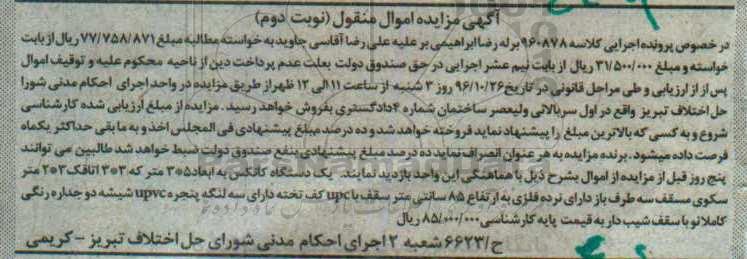 آگهی مزایده اموال منقول (نوبت دوم)
در خصوص پرونده اجرایی کلاسه ۹۶۰۸۷۸ بر له رضا ابراهیمی بر علیه علی رضا آقاسی جاوید به خواسته مطالبه مبلغ ۷۷/۷۵۸/۸۷۱ ریال از بابت
خواسته و مبلغ ۳۱/۵۰۰/۰۰۰ ریال از بابت نیم عشر اجرایی در حق صندوق دولت بعلت عدم پرداخت دین از ناحیه محکوم علیه و توقیف اموال
پس از از ارزیابی و طی مراحل قانونی در تاریخ ۹۶/۱۰/۲۶ روز ۳ شنبه از ساعت ۱۱ الی ۱۲ ظهر از طریق مزایده در واحد اجرای احکام مدنی شورا
حل اختلاف تبریز واقع در اول سربالائی ولیعصر ساختمان شماره ۴ دادگستری بفروش خواهد رسید. مزایده از مبلغ ارزیابی شده کارشناسی
شروع و به کسی که بالاترین مبلغ را پیشنهاد نماید فروخته خواهد شد و ده درصد مبلغ پیشنهادی فی المجلس اخذ و به ما بقی حداکثر یکماه
فرصت داده میشود. برنده مزایده به هر عنوان انصراف نماید ده درصد مبلغ پیشنهادی بنفع صندوق دولت ضبط خواهد شد طالبین می توانند
پنج روز قبل از مزایده از اموال بشرح ذیل با هماهنگی این واحد بازدید نمایند. یک دستگاه کانکس به ابعاد ۵*۳ متر که ۳*۳ اتاقک ۳*۲ متر
سکوی مسقف سه طرف باز دارای نرده فلزی به ارتفاع ۸۵ سانتی متر سقف با upc کف تخته دارای سه لنگه پنجره upvc شیشه دو جداره رنگی
کاملا نو با سقف شیب دار به قیمت پایه کارشناسی ۸۵/۰۰۰/۰۰۰ ریال
ح/۶۶۲۳ شعبه ۲ اجرای احکام مدنی شورای حل اختلاف تبریز - کریمی